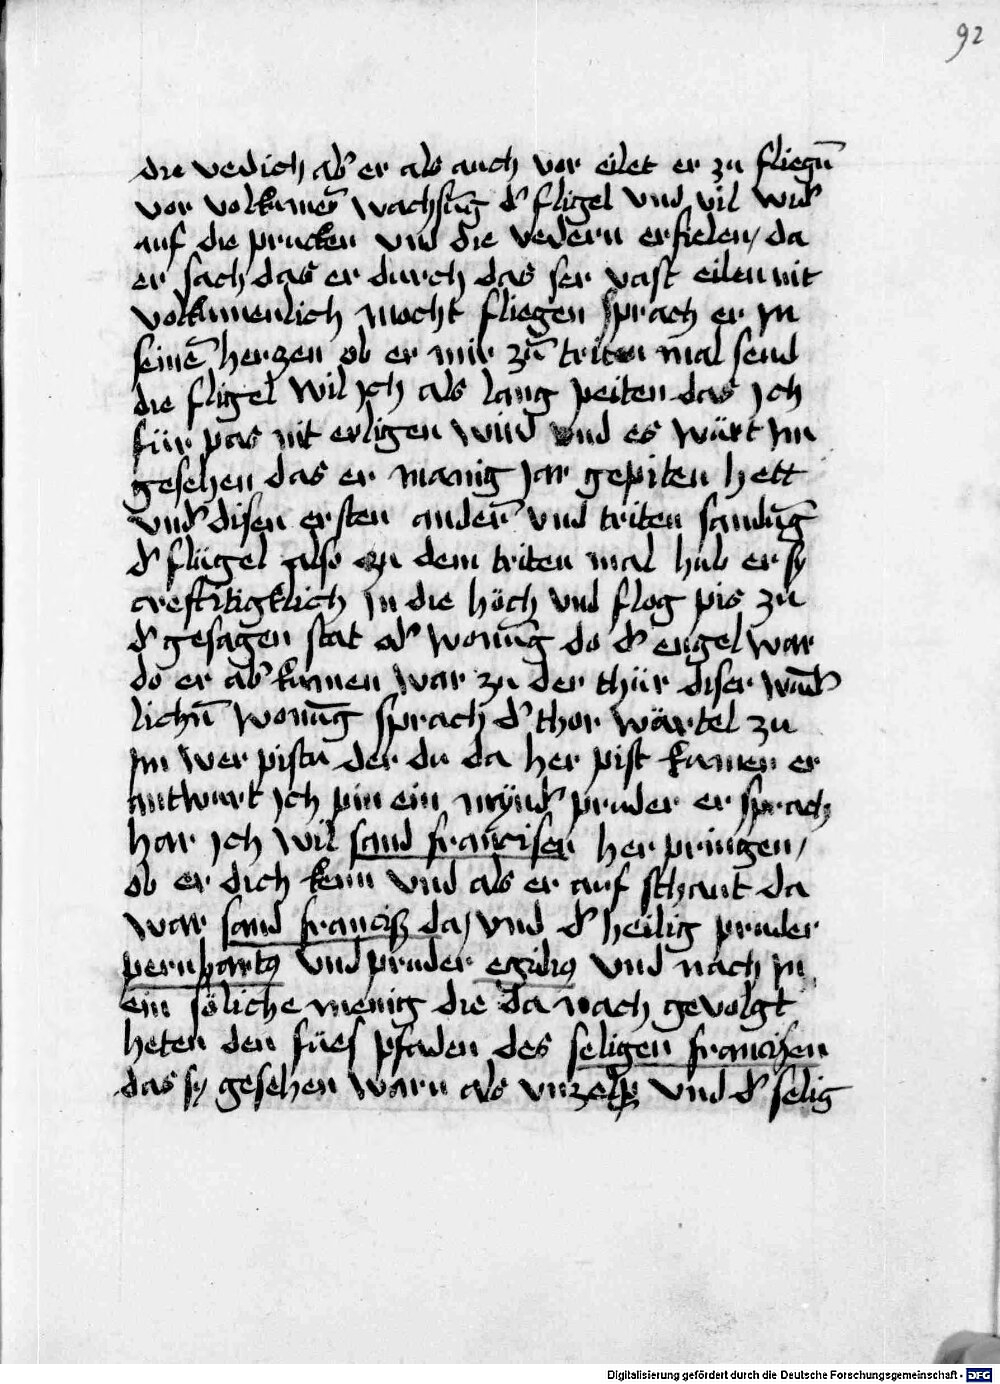 92
die vedich ab' er als auch vor eilet er zu fliegn̄
vor volkumē wachsūg d' fligel vnd vil wid'
auf die prucken vnd die vedern erfielen / da
er sach das er durch das ser vast eilen nit
volkumenlich mocht fliegen sprach er jn
seinē herzen ob er mir zū triten mal send
die fligel wil jch als lang peiten das jch
für pas nit erligen wird vnd es würt jm
gesehen das er manig jar gepiten hett
vnd' disen ersten anderē vnd triten sandūg
d' flügel also zu dem triten mal hub er sy
creftitigklich jn die höch vnd flog pis zu
d' gesagen stat od' wonūg do d' engel war
do er ab' kumen war zu der thür diser wūd'
lichn̄ wonūg sprach d' thor wärtel zu
jm wer pistu der du da her pist kumen er
antwurt jch pin ein mynd' pruder er sprach
har jch wil sand francisen her pringen /
ob er dich kenn vnd als er auf schaut da
war sand francisß da / vnd d' heilig pruder
pernharto vnd pruder egidio vnd nach jn
ein söliche menig die da nach gevolgt
heten den fües pfaden des seligen francisen
das sy gesehen warn als vnzelp vnd d' selig
Digitalisierung gefördert durch die Deutsche Forschungsgemeinschaft - DFG